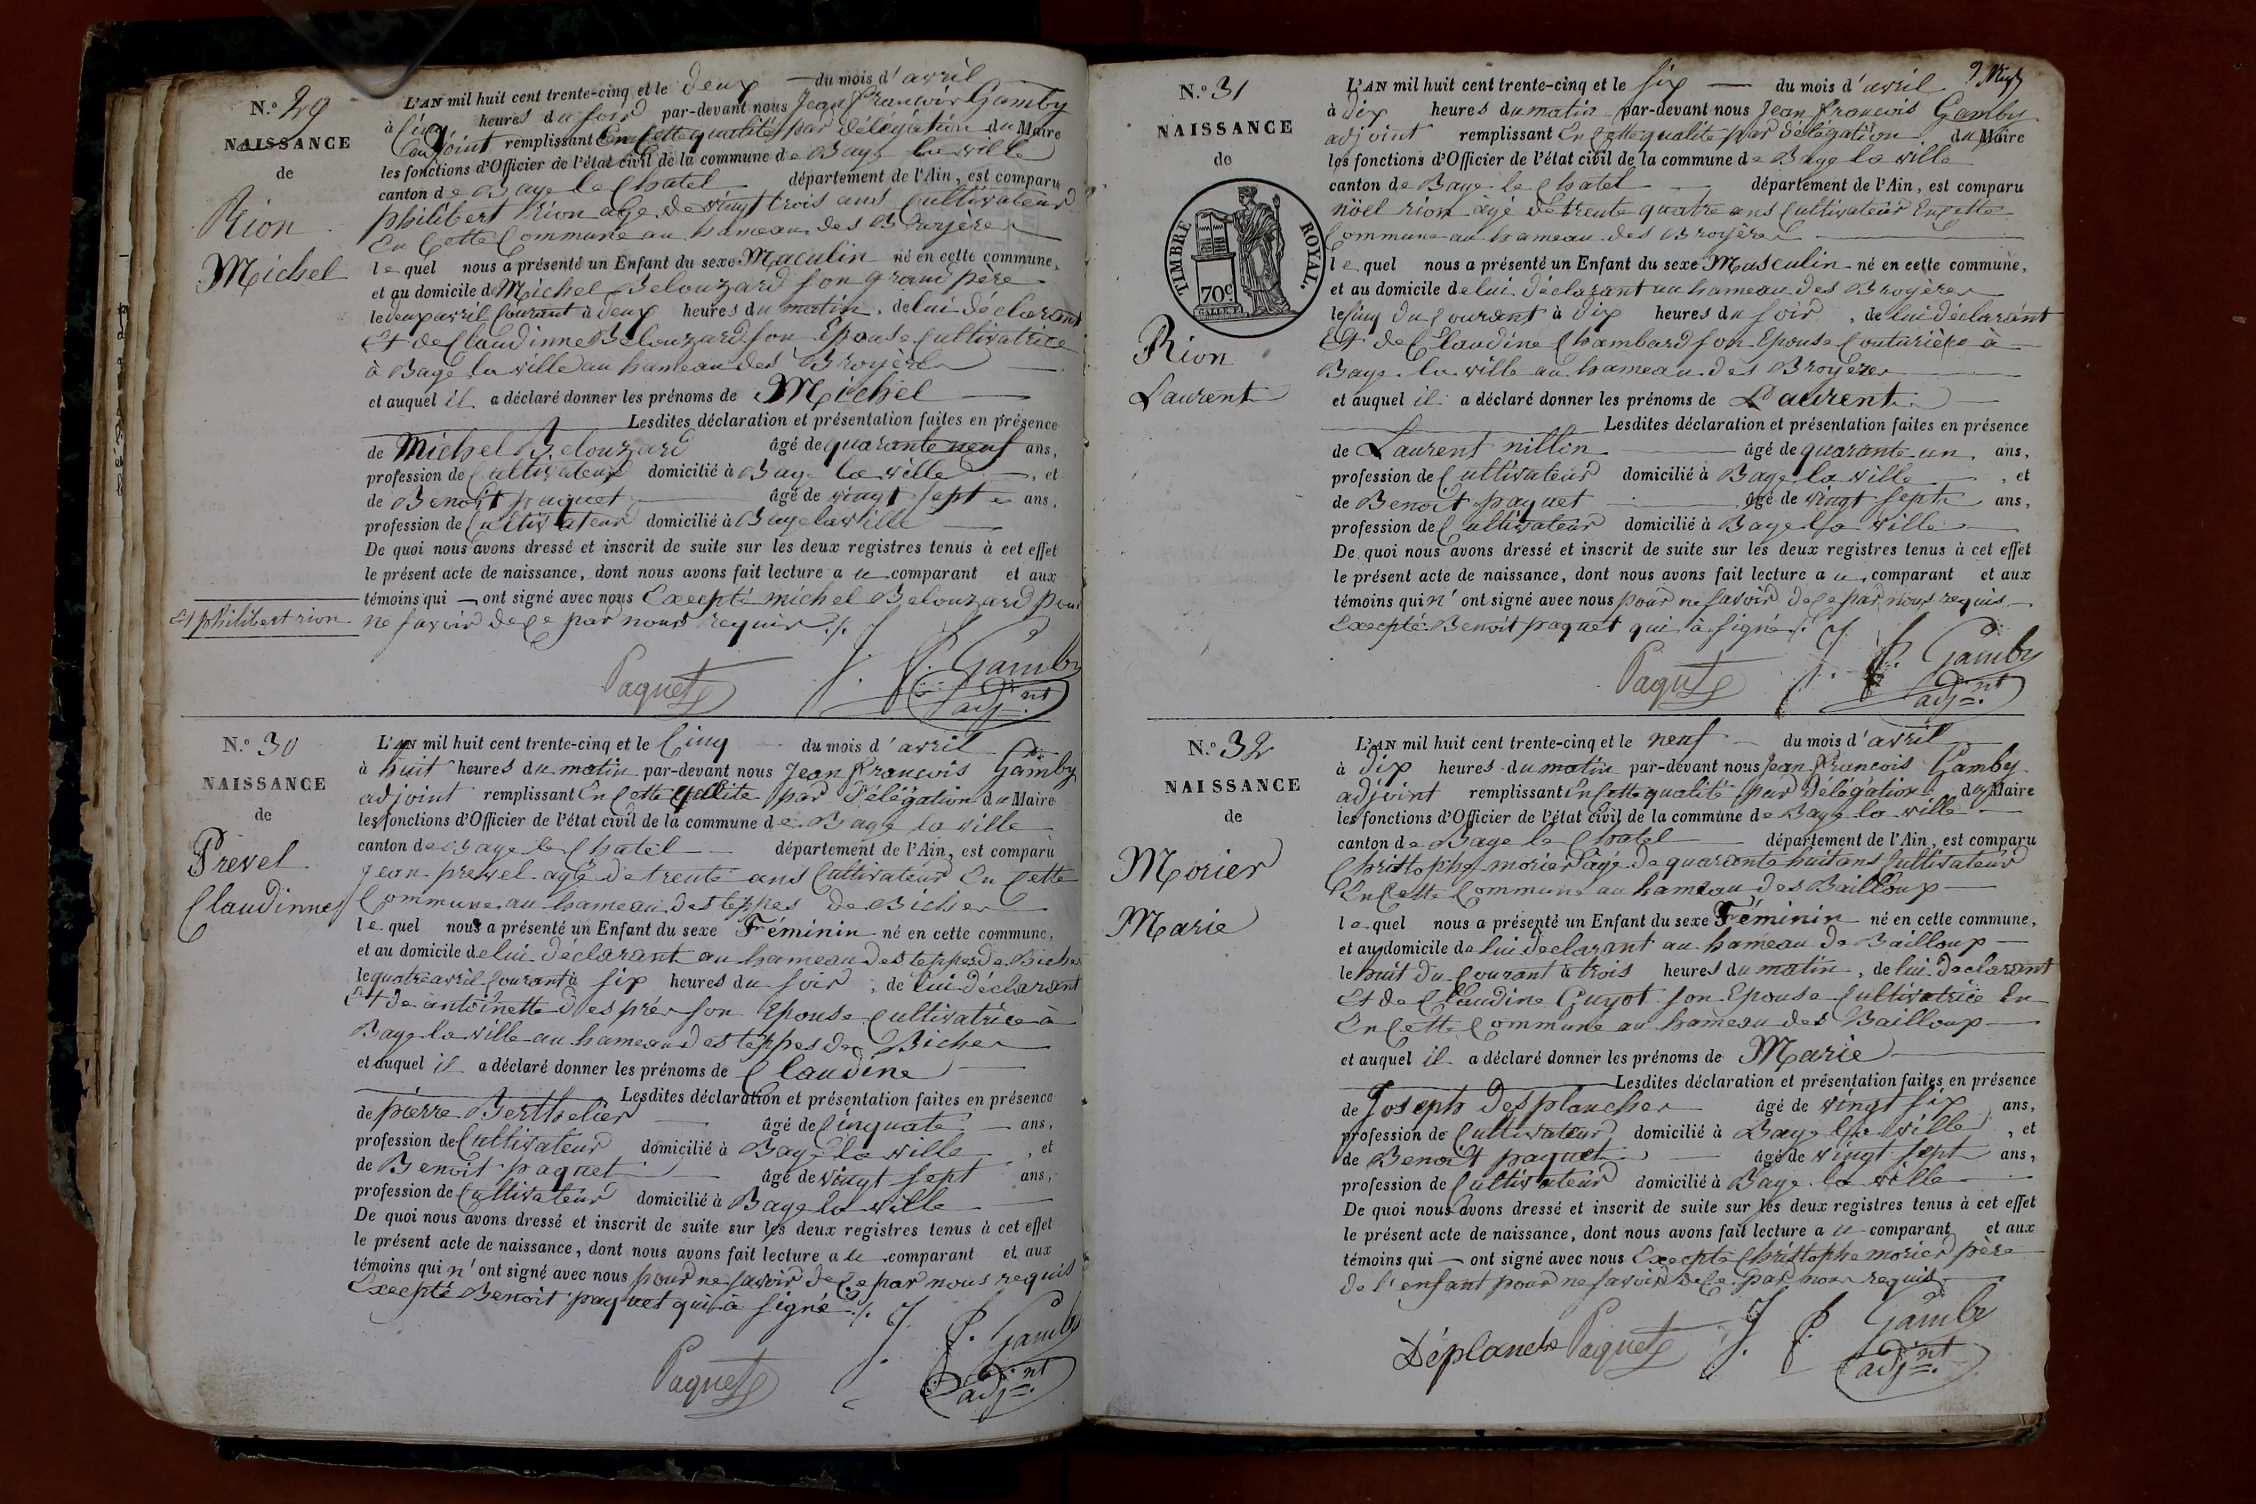 N.o 29
NAISSANCE
de
Rion
Michel
L'AN mil huit cent trente-cinq et le deux du mois d'avril
à cinq heures du soir par-devant nous Jean francois Gamby
adjoint remplissant En Cette qualité par délégation du Maire
les fonctions d'Officier de l'état civil de la commune de Bagé la ville
canton de Bage le Chatel département de l'Ain, est comparu
philibert rion agé de vingt trois ans Cultivateur
En Cette Commune au hameau des Broyères
lequel nous a présenté un Enfant du sexe Maculin né en cette commune,
et au domicile de Michel Belouzard son grand père
le deux avril Courant à deux heures du matin, de lui déclarant
Et de Claudinne Belouzard son Epouse Cultivatrice
à Bagé la ville au hameau des Broyères
et auquel il a déclaré donner les prénoms de Michel
Lesdites déclaration et présentation faites en présence
de Michel Belouzard âgé de quarante neuf ans,
profession de Cultivateur domicilié à Bage la ville, et
de Benoit paquet âgé de vingt sept ans,
profession de Cultivateur domicilié à Bage la ville
De quoi nous avons dressé et inscrit de suite sur les deux registres tenus à cet effet
le présent acte de naissance, dont nous avons fait lecture a u comparant et aux
témoins qui ont signé avec nous Excepté michel Belouzard pour
Et philibert rion
ne savoir de Ce par nous requis ./.
Paquet J. f. Gamby
adjnt.
N.o 30
NAISSANCE
de
Prevel
Claudinne
L'AN mil huit cent trente-cinq et le Cinq du mois d'avril
à huit heures du matin par-devant nous Jean francois Gamby
adjoint remplissant En Cette qualite par Délégation du Maire
les fonctions d'Officier de l'état civil de la commune de Bage la ville
canton de Bage le Chatel département de l'Ain, est comparu
Jean prevel agé de trente ans Cultivateur En Cette
Commune au hameau des teppes de Biches
lequel nous a présenté un Enfant du sexe Féminin né en cette commune,
et au domicile de lui déclarant au hameau des teppes de Biches
le quatre avril Courant à six heures du soir, de lui déclarant
Et de antoinette Després son Epouse Cultivatrice à
Bage la ville au hameau des teppes de Biches
et auquel il a déclaré donner les prénoms de Claudine
Lesdites déclaration et présentation faites en présence
de pierre Berthelier âgé de Cinquate ans,
profession de Cultivateur domicilié à Bage la ville, et
de Benoit paquet âgé de vingt sept ans,
profession de Cultivateur domicilié à Bage la ville
De quoi nous avons dressé et inscrit de suite sur les deux registres tenus à cet effet
le présent acte de naissance, dont nous avons fait lecture a u comparant et aux
témoins qui n'ont signé avec nous pour ne savoir de Ce par nous requis
Excepté Benoit paquet qui à signé ./.
Paquet J. f. Gamby
adjnt.
N.o 31
NAISSANCE
de
TIMBRE ROYAL.
70c.
Rion
Laurent
L'AN mil huit cent trente-cinq et le six du mois d'avril
à dix heures du matin par-devant nous Jean francois Gamby
adjoint remplissant En Cette qualité par délégation du Maire
les fonctions d'Officier de l'état civil de la commune de Bage la ville
canton de Bage le Chatel département de l'Ain, est comparu
nöel rion âgé de trente quatre ans Cultivateur En cette
Commune au hameau des Broyères
lequel nous a présenté un Enfant du sexe Masculin né en cette commune,
et au domicile de lui déclarant au hameau des Broyères
le Cinq du Courant à dix heures du soir, de lui déclarant
Et de Claudine Chambard son Epouse Couturière à
Bage la ville au hameau des Broyères
et auquel il a déclaré donner les prénoms de Laurent
Lesdites déclaration et présentation faites en présence
de Laurent nillin âgé de quarante un ans,
profession de Cultivateur domicilié à Bage la ville, et
de Benoit paquet âgé de vingt sept ans,
profession de Cultivateur domicilié à Bage la ville
De quoi nous avons dressé et inscrit de suite sur les deux registres tenus à cet effet
le présent acte de naissance, dont nous avons fait lecture a u comparant et aux
témoins qui n'ont signé avec nous pour ne savoir de Ce par nous requis
Excepté Benoit paquet qui à signé ./.
Paquet J. f. Gamby
adjnt.
N.o 32
NAISSANCE
de
Morier
Marie
L'AN mil huit cent trente-cinq et le neuf du mois d'avril
à dix heures du matin par-devant nous Jean francois Gamby
adjoint remplissant En Cette qualité par Délégation du Maire
les fonctions d'Officier de l'état civil de la commune de Bage la ville
canton de Bage le Chatel département de l'Ain, est comparu
Christophe morier agé de quarante huit ans Cultivateur
En Cette Commune au hameau des Bailloux
lequel nous a présenté un Enfant du sexe Féminin né en cette commune,
et au domicile de lui declarant au hameau de Bailloux
le huit du Courant à trois heures du matin, de lui declarant
Et de Claudine Guyot son Epouse Cultivatrice En
En Cette Commune au hameau des Bailloux
et auquel il a déclaré donner les prénoms de Marie
Lesdites déclaration et présentation faites en présence
de Joseph Desplanches âgé de vingt six ans,
profession de Cultivateur domicilié à Bage la ville, et
de Benoit paquet âgé de vingt sept ans,
profession de Cultivateur domicilié à Bage la ville
De quoi nous avons dressé et inscrit de suite sur les deux registres tenus à cet effet
le présent acte de naissance, dont nous avons fait lecture a u comparant et aux
témoins qui ont signé avec nous Excepté Christophe morier père
de l'enfant pour ne savoir de Ce par nous requis
Déplanche Paquet J. f. Gamby
adjnt.